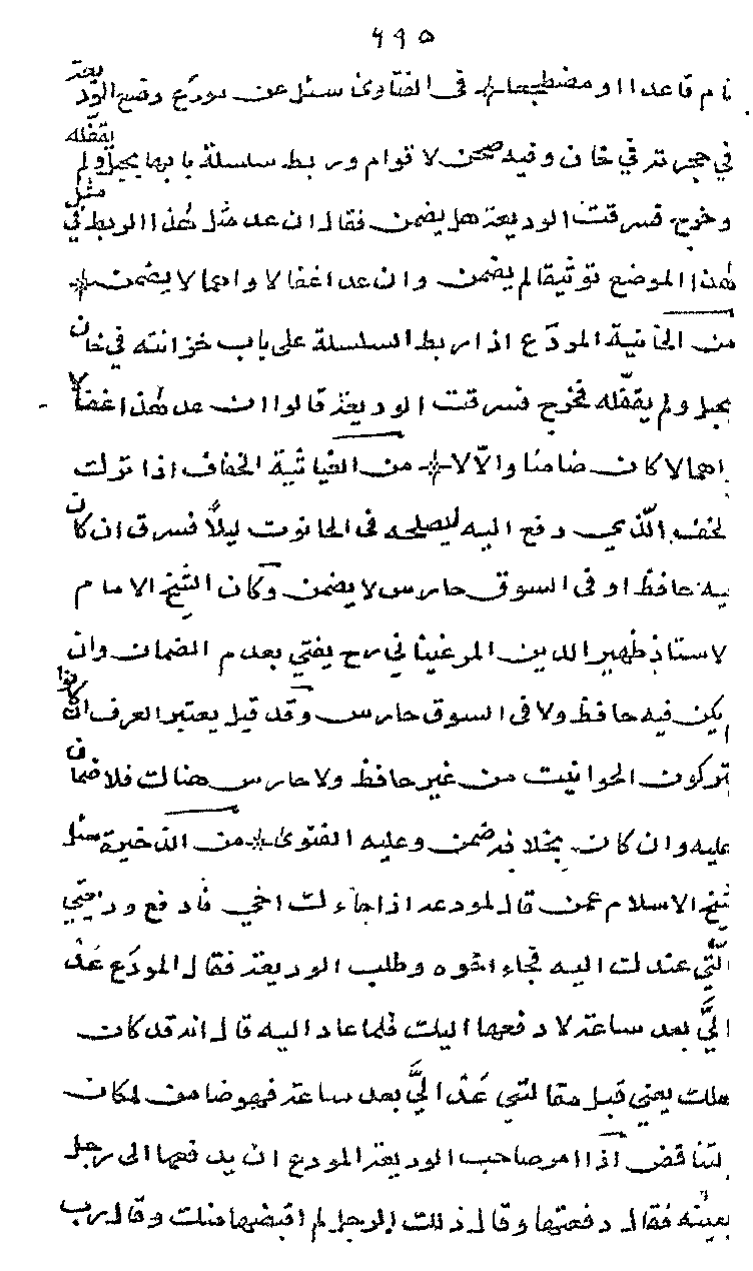 ٦٩٥
نام قاعدا او مضطجعا * فى الفتاوى سئل عن مودع وضع الوديعة
في حجرته في خان وفيه صحن لاقوام وربط سلسلة بابها بحبل ولم يقفله
وخرج فسرقت الوديعة هل يضمن فقال ان عد مثل هذا الربط في مثل
هذا الموضع توثيقا لم يضمن وان عد اغفالا واهمالا يضمن *
من الخانية المودع اذا ربط السلسلة على باب خزانته في خان
بحبل ولم يقفله فخرج فسرقت الوديعة قالوا ان عد هذا اغفالا
واهمالا كان ضامنا والا لا * من الغياثية الخفاف اذا ترك
الخف الذي دفع اليه ليصلحه فى الحانوت ليلا فسرق ان كان
فيه حافظ او فى السوق حارس لا يضمن وكان الشيخ الامام
الاستاذ ظهير الدين المرغيناني رح يفتي بعدم الضمان وان
لم يكن فيه حافظ ولا فى السوق حارس وقد قيل يعتبر العرف ان كانوا
يتركون الحوانيت من غير حافظ ولا حارس هنالك فلا ضمان
عليه وان كان بخلافه ضمن وعليه الفتوى * من الذخيرة سئل
شيخ الاسلام عمن قال لمودعه اذا جاءك اخي فادفع وديعتي
التي عندك اليه فجاء اخوه وطلب الوديعة فقال المودع عد
الي بعد ساعة لادفعها اليك فلما عاد اليه قال انه قد كان
هلك يعني قبل مقالتي عد الي بعد ساعة فهو ضامن لمكان
التناقض اذا امر صاحب الوديعة المودع ان يدفعها الى رجل
بعينه فقال دفعتها وقال ذلك الرجل لم اقبضها منك وقال رب